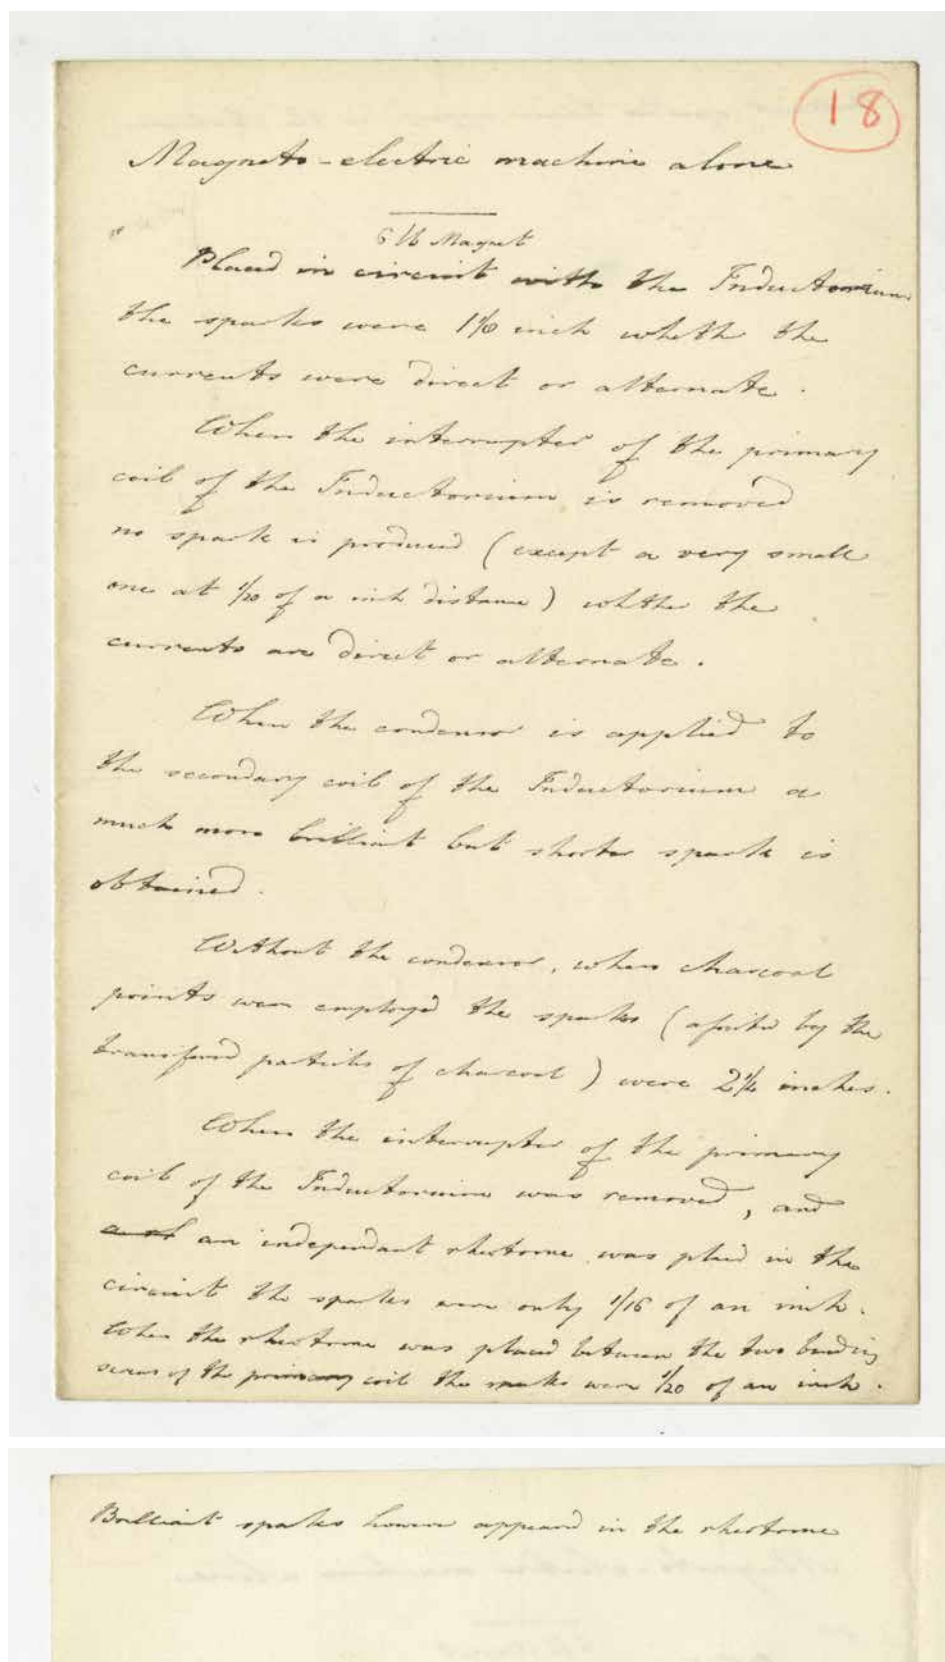 18
Magneto-electric machine alone
6 lb Magnet
Placed in circuit with the Inductorium
the sparks were 1⅛ inch wheth the
currents were direct or alternate.
When the interrupter of the primary
coil of the Inductorium is removed
no spark is produced (except a very small
one at 1/20 of a inch distance) whther the
currents are direct or alternate.
When the condensor is applied to
the secondary coil of the Inductorium a
much more brilliant but shorter spark is
obtained.
Without the condensor, when charcoal
points were employed the sparks ( by the
transferred particles of charcoal) were 2¼ inches.
When the interrupter of the primary
coil of the Inductorium was removed, and
an independant rheotome was placed in the
circuit the sparks were only 1/16 of an inch.
When the rheotome was placed between the two binding
screws of the primary coil the sparks were 1/20 of an inch.
Brilliant sparks however appeared in the rheotome